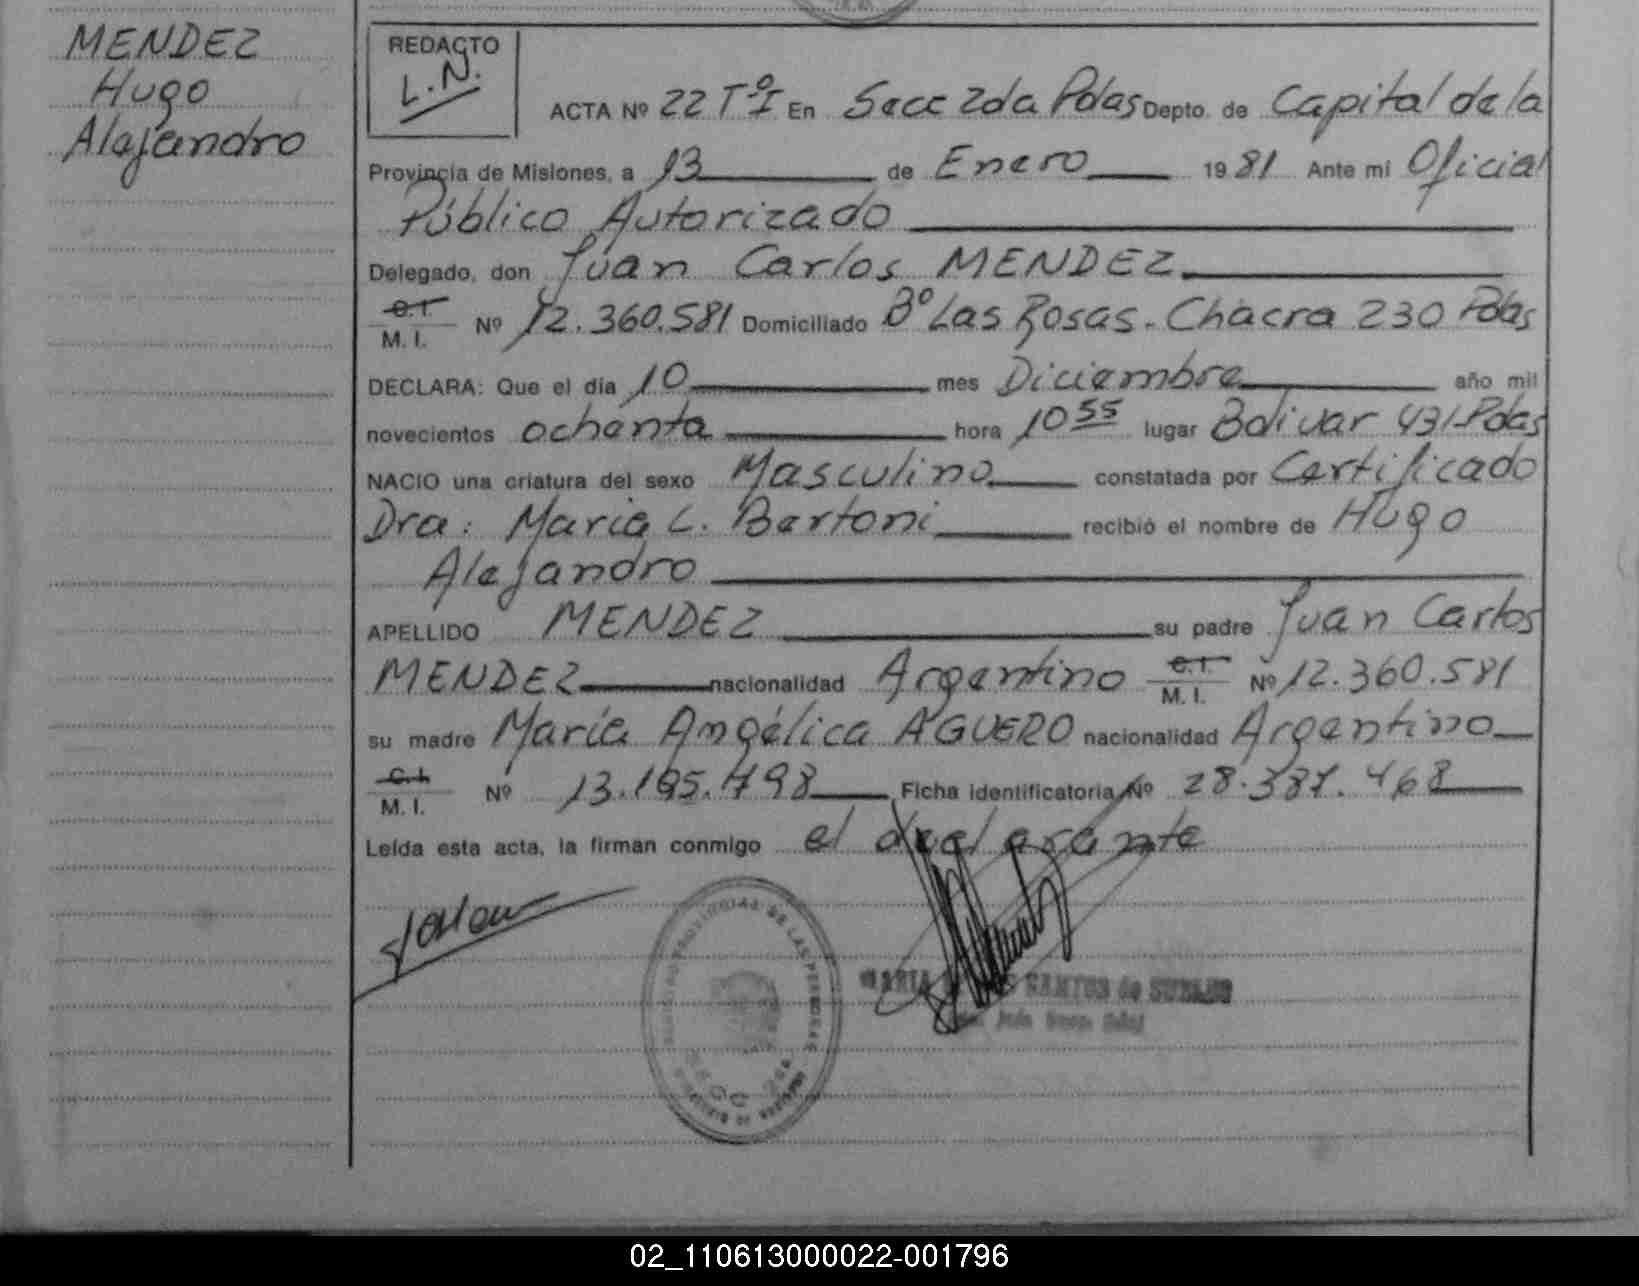 MENDEZ
Hugo
Alejandro
REDACTO
L.N.
ACTA Nº 22 Tº I En Secc 2da Pdas Depto. de Capital de la
Provincia de Misiones, a 13 de Enero 1981 Ante mi Oficial
Público Autorizado
Delegado, don Juan Carlos MENDEZ
C.I.
M. I. Nº 12.360.581 Domiciliado Bº Las Rosas. Chacra 230 Pdas
DECLARA: Que el día 10 mes Diciembre año mil
novecientos ochenta hora 10 55 lugar Bolivar 431-Pdas
NACIO una criatura del sexo Masculino constatada por Certificado
Dra: María C. Bertoni recibió el nombre de Hugo
Alejandro
APELLIDO MENDEZ su padre Juan Carlos
MENDEZ nacionalidad Argentino C.I. M. I. Nº 12.360.581
su madre María Angélica AGUERO nacionalidad Argentino
C.I.
M. I. Nº 13.195.798 Ficha identificatoria Nº 28.387.468
Leída esta acta, la firman conmigo el declarante
PROVINCIAL DE LAS PERSONAS
MARIA SANTOS de
02_110613000022-001796